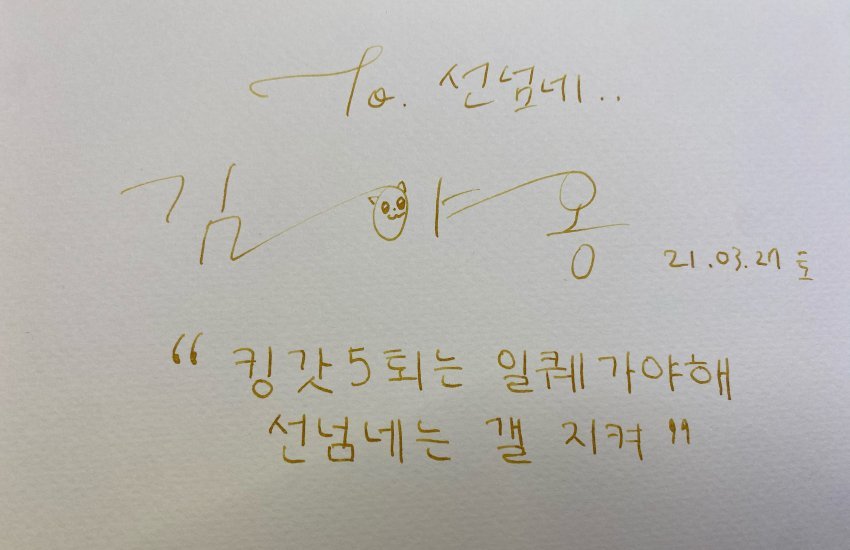 To. 선넘네..
김야옹
21.03.27 토
“ 킹갓5퇴는 일퀘가야해
선넘네는 갤 지켜 ”